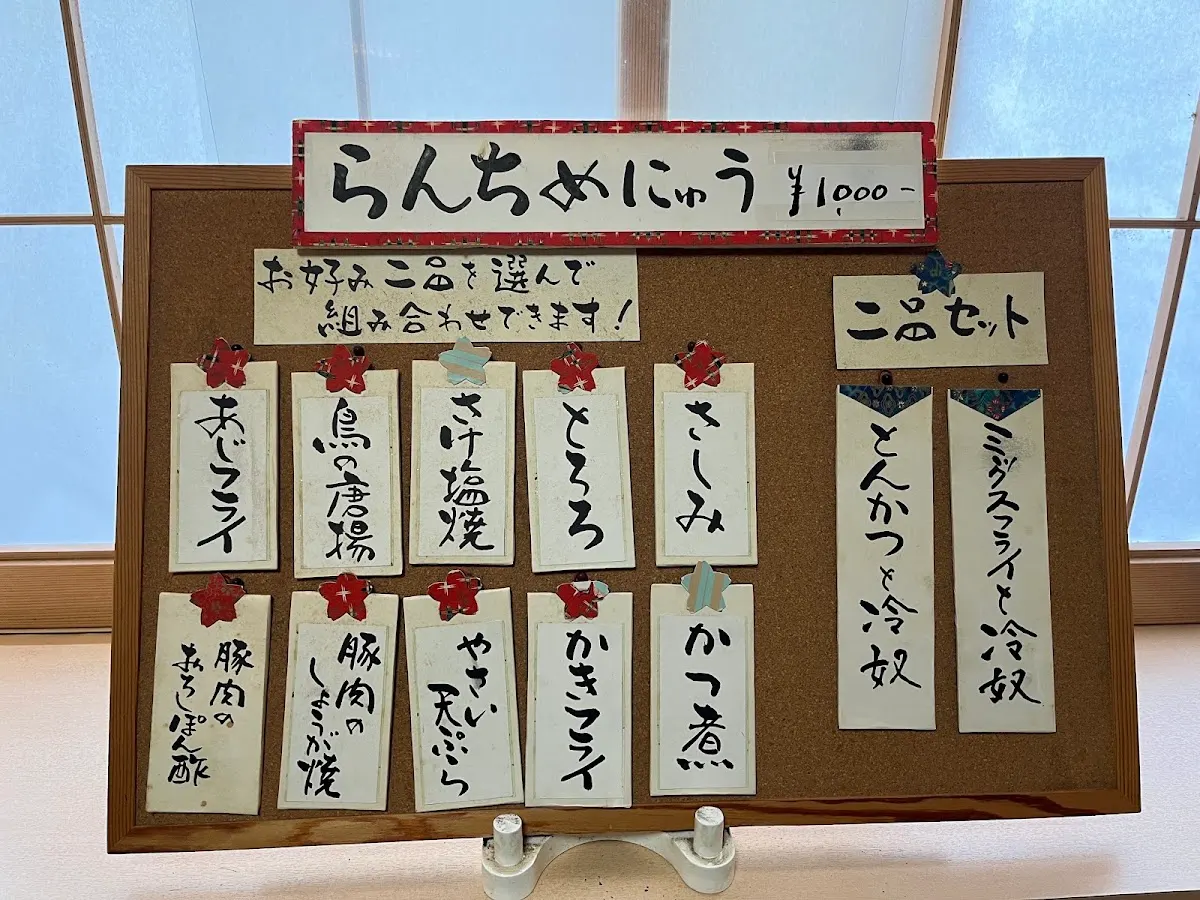 らんちめにゅう ¥1,000-
お好み二品を選んで
組み合わせできます！
二品セット
さしみ
とろろ
さけ塩焼
鳥の唐揚
あじフライ
かつ煮
かきフライ
やさい
天ぷら
豚肉の
しょうが焼
豚肉の
おろしぽん酢
ミックスフライと冷奴
とんかつと冷奴